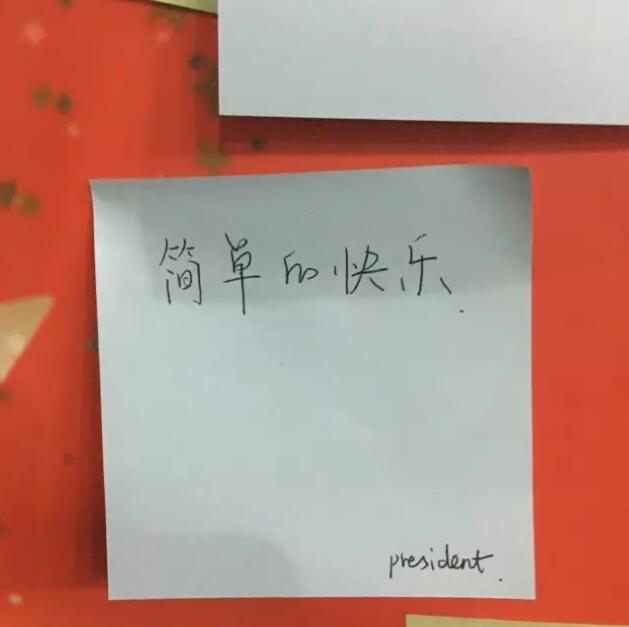 简单的快乐.
president.